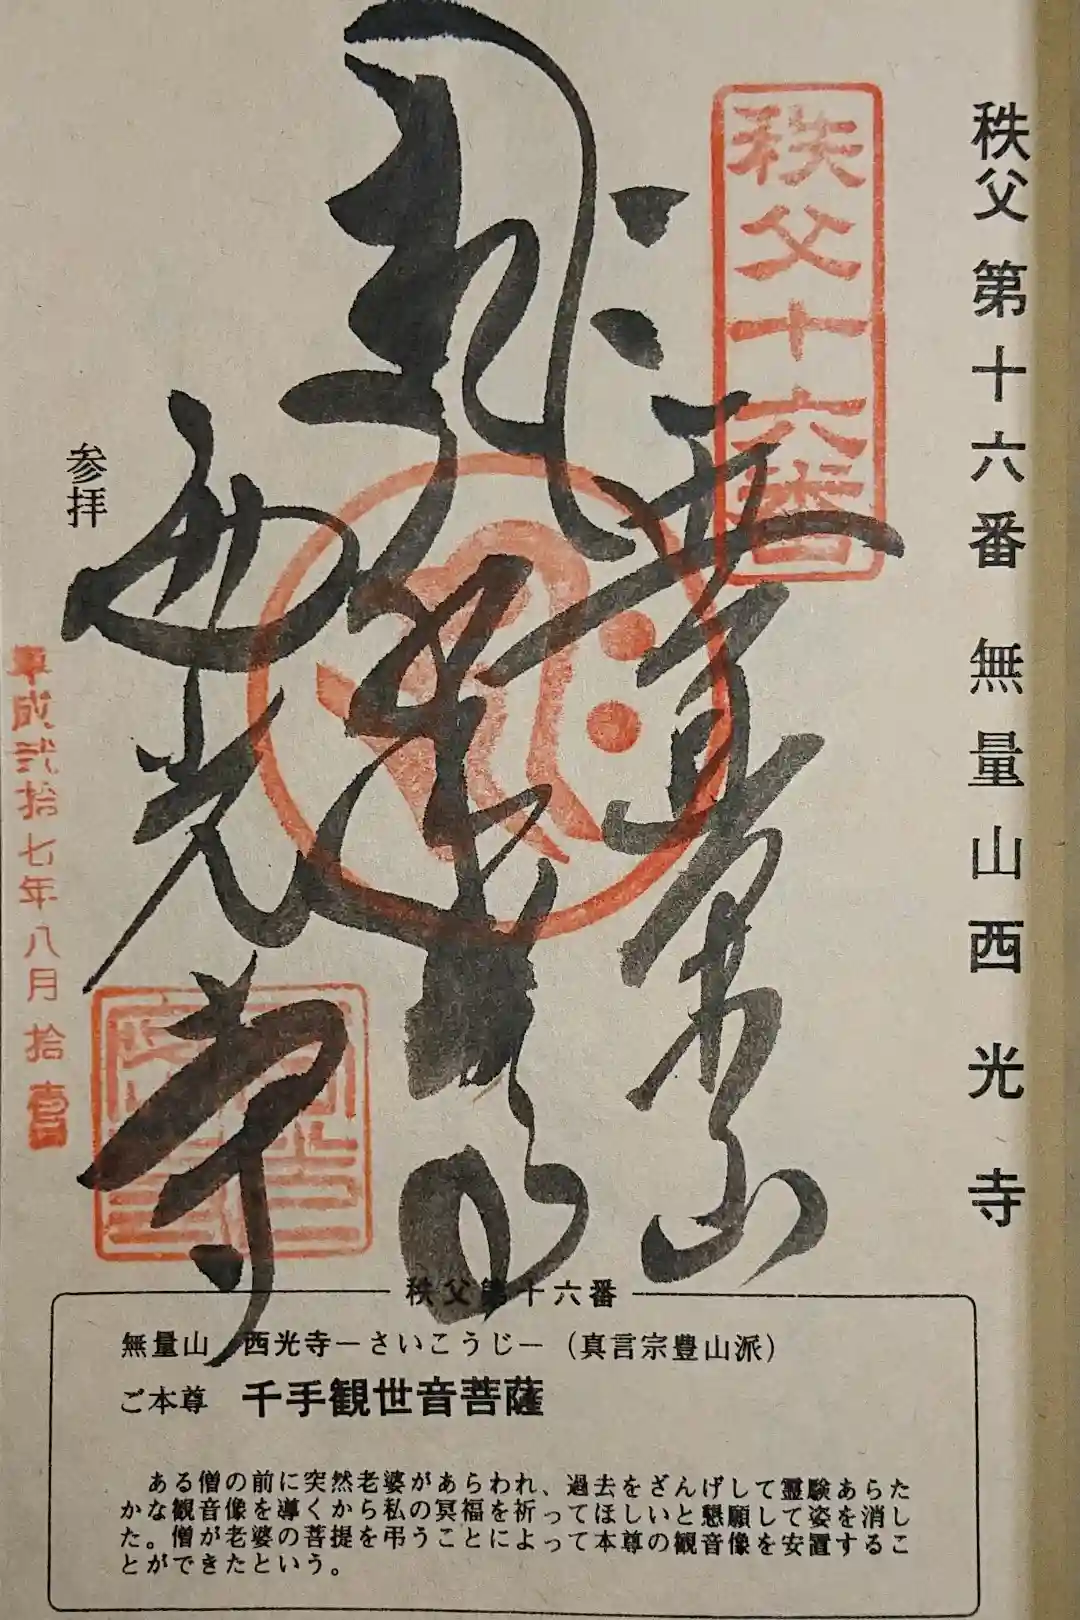 秩父 第十六番 無量山西光寺
秩父十六番
無量山
西光寺
参拝
平成弐拾七年八月拾壹日
秩父第十六番
無量山 西光寺－さいこうじ－（真言宗豊山派）
ご本尊 千手観世音菩薩
ある僧の前に突然老婆があらわれ、過去をざんげして霊験あらた
かな観音像を導くから私の冥福を祈ってほしいと懇願して姿を消し
た。僧が老婆の菩提を弔うことによって本尊の観音像を安置するこ
とができたという。